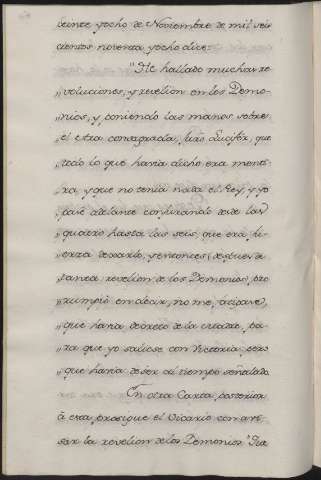 veinte y ocho de Noviembre de mil seis
cientos noventa y ocho dice:
"He hallado muchas re
"voluciones, y revelion en los Demo-
"nios, y poniendo las manos sobre
"el otra consagrada, juró Lucifer, que
"todo lo que havia dicho era menti-
"ra, y que no tenia nada el Rey, y yo
"pasé adelante conjurando desde las
"quatro hasta las seis, que era fu-
"erza dexarlo, y entonces, despues de
"tanta revelion de los Demonios, pro
"rumpió en decir, no me, 
"que havia decreto de la 
"ra que yo saliese con Victoria, pero
"que havia de ser al tiempo señalado.
En otra Carta, posterior
á esta prosigue el Vicario con avi-
sar la revelion de los Demonios "